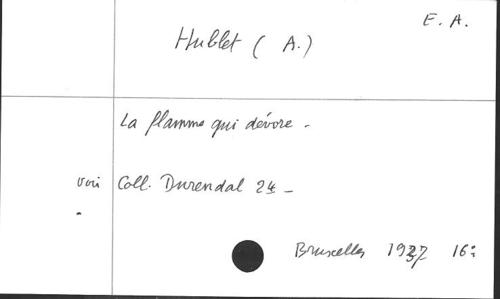 E. A.
Hublet ( A.)
La flamme qui dévore -
voir Coll. Durendal 24 -
Bruxelles 1937 16: